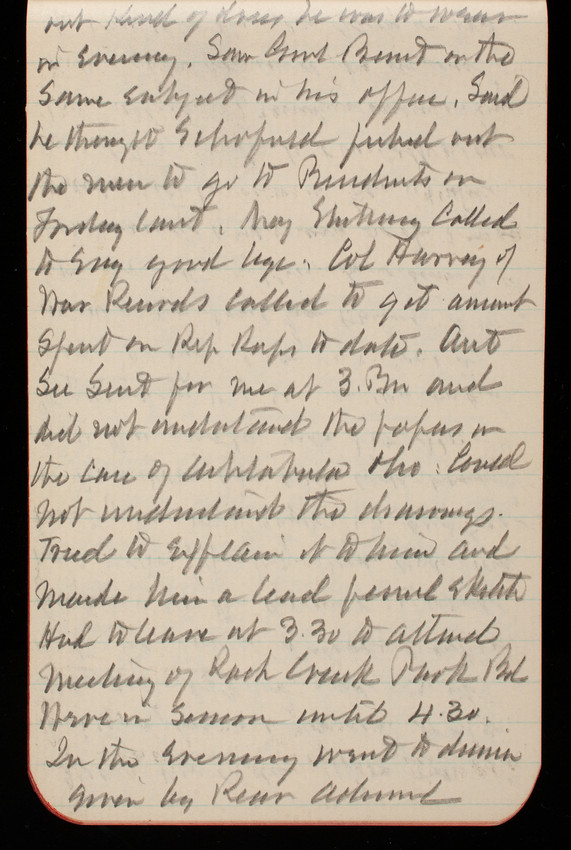 out kind of dress he was to wear
in evening. Saw Genl Benet on the
Same subject in his office. Said
he thought Schofield picked out
the men to go to Presidents on
Friday last. Maj Whitney Called
to Say good bye. Col Harvey of
War Records Called to get amount
Spent on Rip Raps to date. Asst
Sec Sent for me at 3. Pm and
did not understand the papers in
the case of Ashtabula Ohio. Could
not understand the drawings.
Tried to Explain it to him and
made him a lead pencil sketch
Had to leave at 3.30 to attend
Meeting of Rock Creek Park Bd
Were in Session until 4.30.
In the Evening went to dinner
given by Rear Admiral